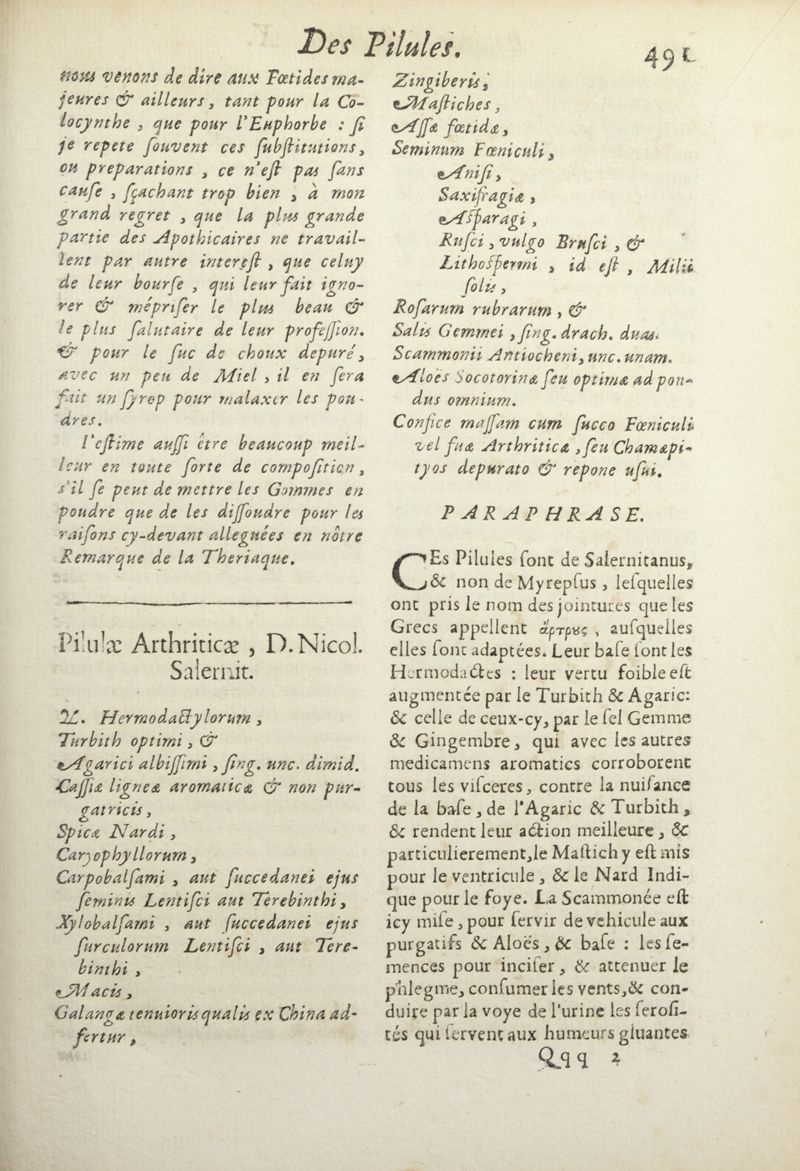 Des Pilules. 491
nous venons de dire aux Fœtides ma-
jeures & ailleurs, tant pour la Co-
locynthe, que pour l'Euphorbe : ſi
je repete ſouvent ces ſubſtitutions,
ou preparations, ce n'eſt pas ſans
cauſe, ſçachant trop bien, à mon
grand regret, que la plus grande
partie des Apothicaires ne travail-
lent par autre intereſt, que celuy
de leur bourſe, qui leur fait igno-
rer & mépriſer le plus beau &
le plus ſalutaire de leur profeſſion.
& pour le ſuc de choux depuré,
avec un peu de Miel, il en ſera
fait un ſyrop pour malaxer les pou-
dres.
I'eſtime auſſi être beaucoup meil-
leur en toute ſorte de compoſition,
s'il ſe peut de mettre les Gommes en
poudre que de les diſſoudre pour les
raiſons cy-devant alleguées en nôtre
Remarque de la Theriaque.
Pilulæ Arthriticæ, D. Nicol.
Salernit.
℞. Hermodactylorum,
Turbith optimi, &
Agarici albiſſimi, ſing. unc. dimid.
Caſſiæ ligneæ aromaticæ & non pur-
gatricis,
Spicæ Nardi,
Caryophyllorum,
Carpobalſami, aut ſuccedanei ejus
ſeminis Lentiſci aut Terebinthi,
Xylobalſami, aut ſuccedanei ejus
ſurculorum Lentiſci, aut Tere-
binthi,
Macis,
Galangæ tenuioris qualis ex China ad-
fertur,
Zingiberis,
Maſtiches,
Aſſæ fœtidæ,
Seminum Fœniculi,
Aniſi,
Saxifragiæ,
Aſparagi,
Ruſci, vulgo Bruſci, &
Lithoſpermi, id eſt, Milii
ſolis,
Roſarum rubrarum, &
Salis Gemmei, ſing. drach. duas.
Scammonii Antiocheni, unc. unam.
Aloës Socotorinæ ſeu optimæ ad pon-
dus omnium.
Confice maſſam cum ſucco Fœniculi
vel ſuæ Arthriticæ, ſeu Chamæpi-
tyos depurato & repone uſui.
PARAPHRASE.
CEs Pilules ſont de Salernitanus,
& non de Myrepſus, leſquelles
ont pris le nom des jointures que les
Grecs appellent ἄρτρȣς, auſquelles
elles ſont adaptées. Leur baſe ſont les
Hermodactes : leur vertu foible eſt
augmentée par le Turbith & Agaric:
& celle de ceux-cy, par le ſel Gemme
& Gingembre, qui avec les autres
medicamens aromatics corroborent
tous les viſceres, contre la nuiſance
de la baſe, de l'Agaric & Turbith,
& rendent leur action meilleure, &
particulierement, le Maſtich y eſt mis
pour le ventricule, & le Nard Indi-
que pour le foye. La Scammonée eſt
icy miſe, pour ſervir de vehicule aux
purgatifs & Aloës, & baſe : les ſe-
mences pour inciſer, & attenuer le
phlegme, conſumer les vents, & con-
duire par la voye de l'urine les ſeroſi-
tés qui ſervent aux humeurs gluantes
Qqq 2